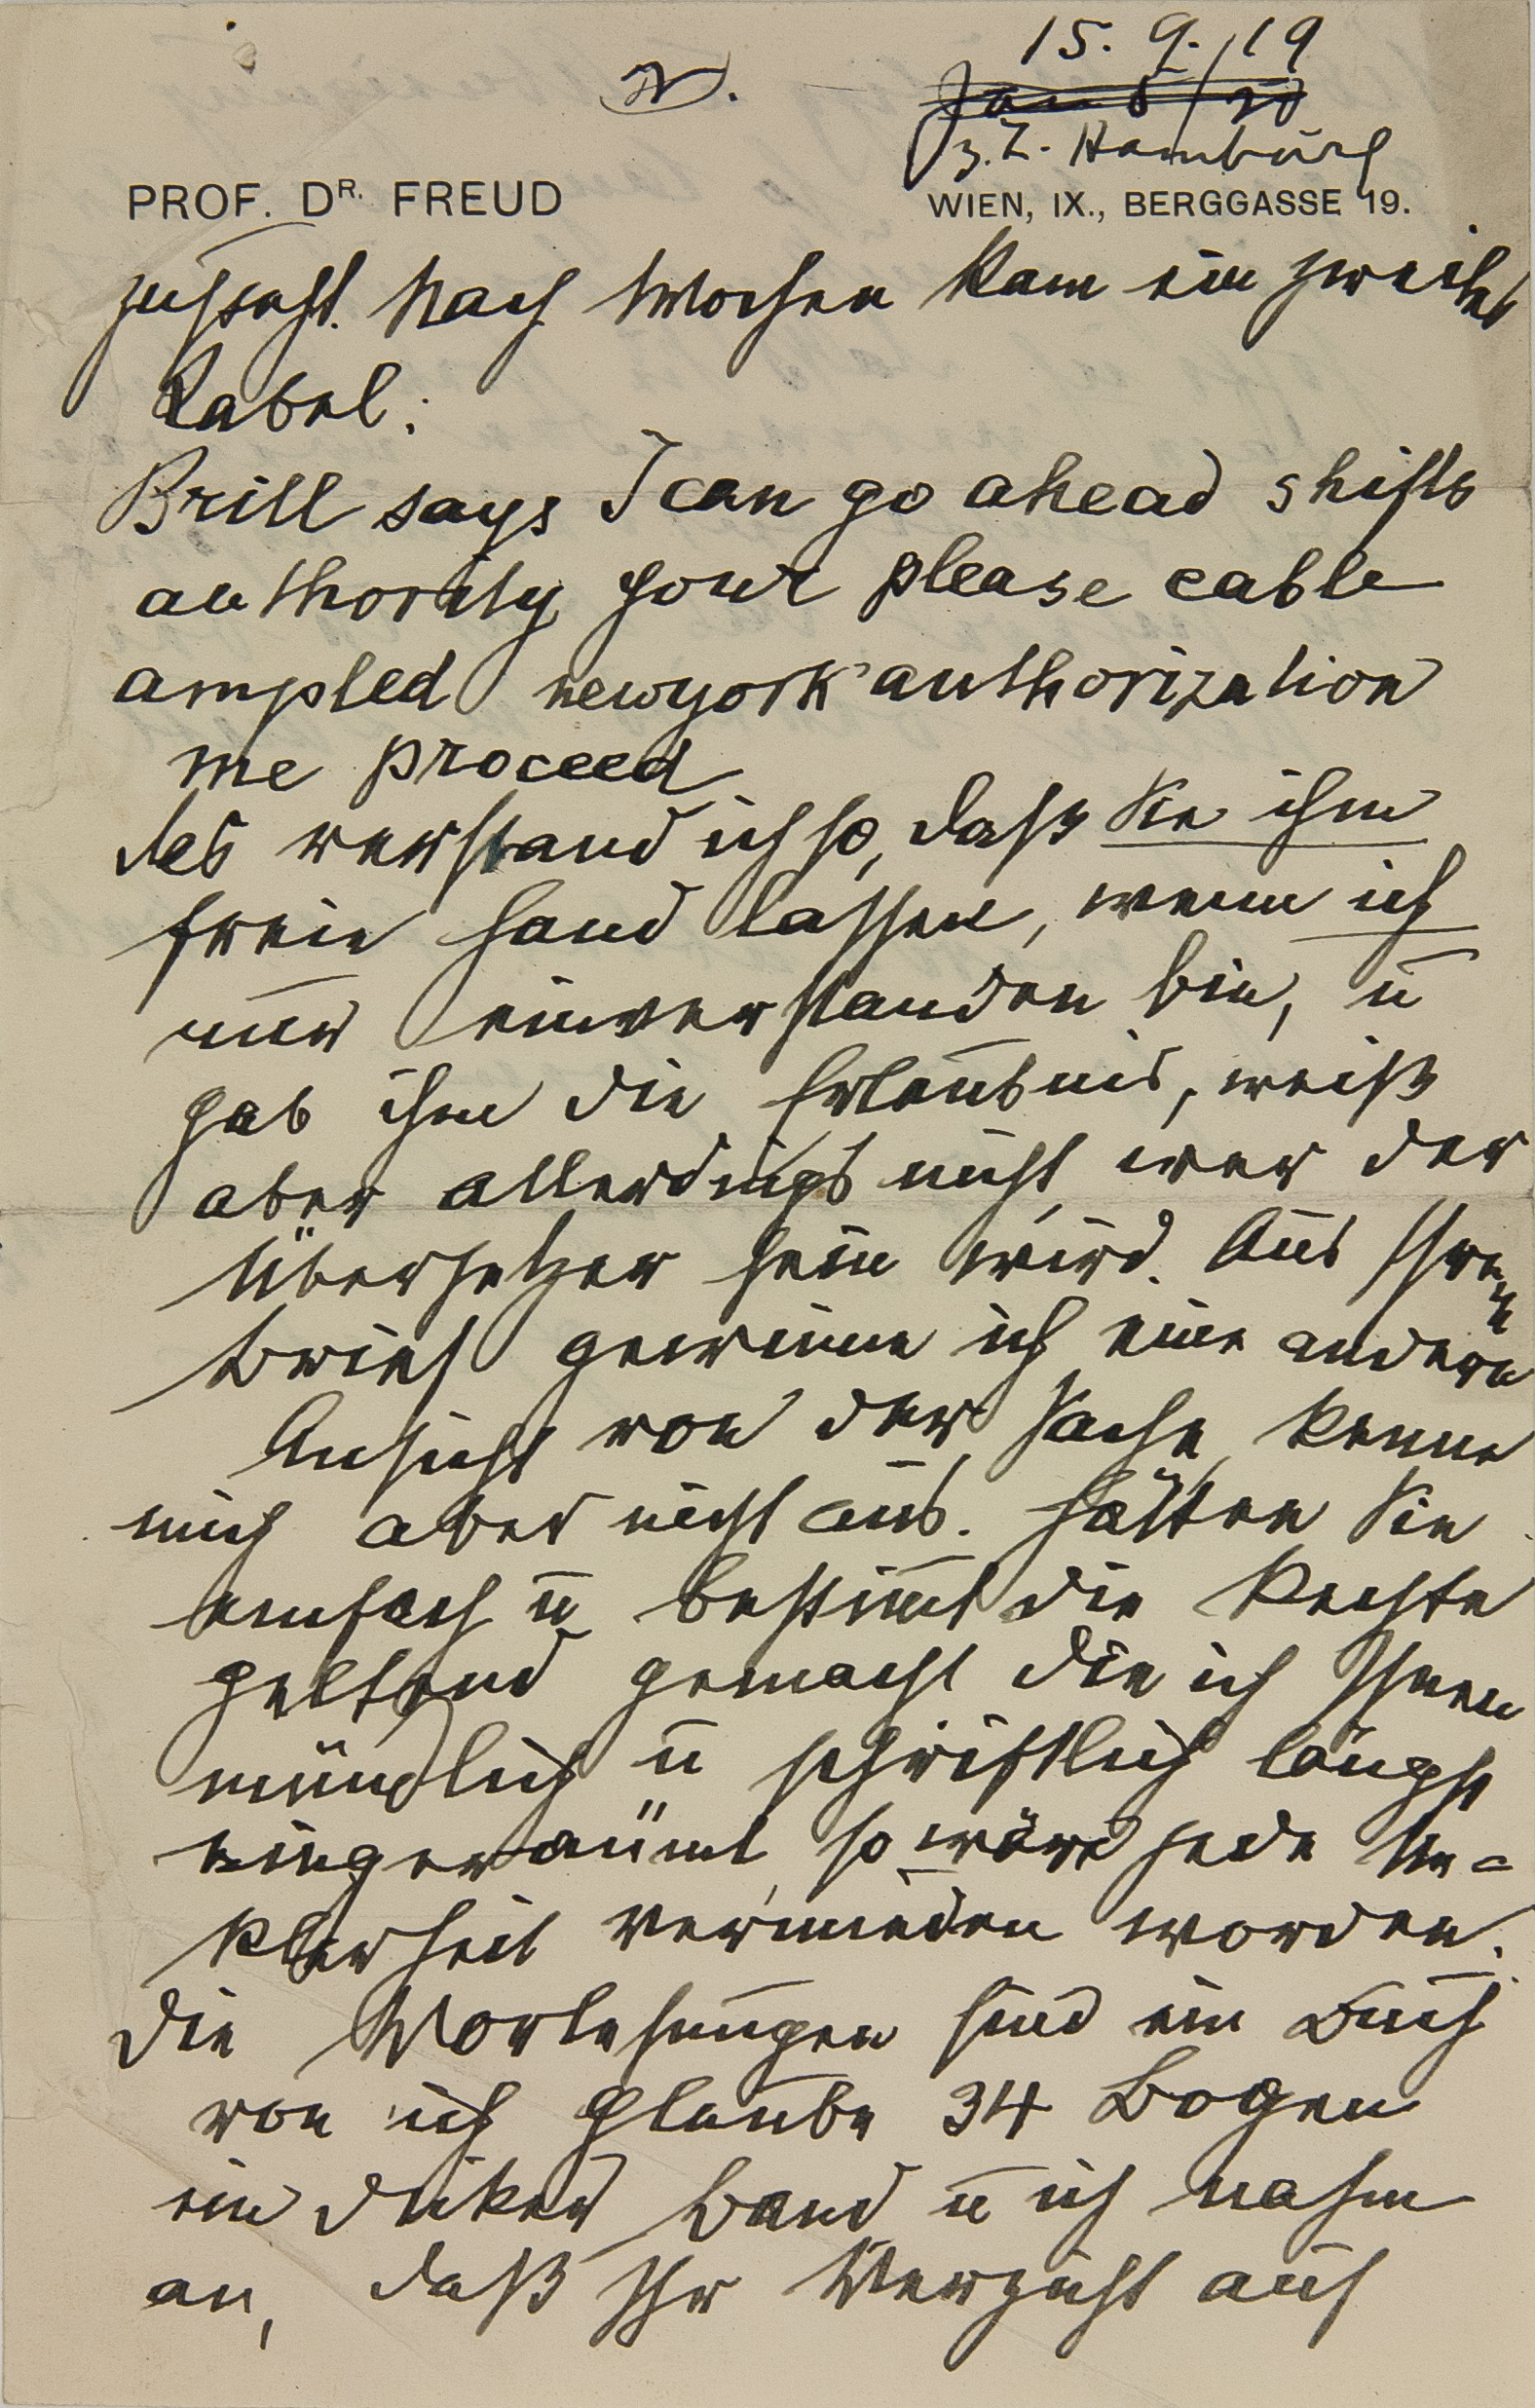 15. 9. 19
z. Z. Hamburg
PROF. DR. FREUD
WIEN, IX., BERGGASSE 19.
zusteht. Nach Wochen kam ein zweites
Kabel:
Brill says I can go ahead shifts
authority your please cable
ampled newyork authorization
me proceed
Das verstand ich so, daß Sie ihm
freie Hand lassen, wenn ich
nur einverstanden bin, u
gab ihm die Erlaubnis, weiß
aber allerdings nicht, wer der
Übersetzer sein wird. Aus Ihrem
Brief gewinne ich eine andere
Ansicht von der Sache, kenne
mich aber nicht aus. Hätten Sie
einfach u bestimmt die Rechte
geltend gemacht die ich Ihnen
mündlich u schriftlich längst
eingeräumt, so wäre jede Un-
klarheit vermieden worden.
Die Vorlesungen sind ein Buch
von ich glaube 34 Bogen
ein dicker Band u ich nahm
an, daß Ihr Verzicht auf